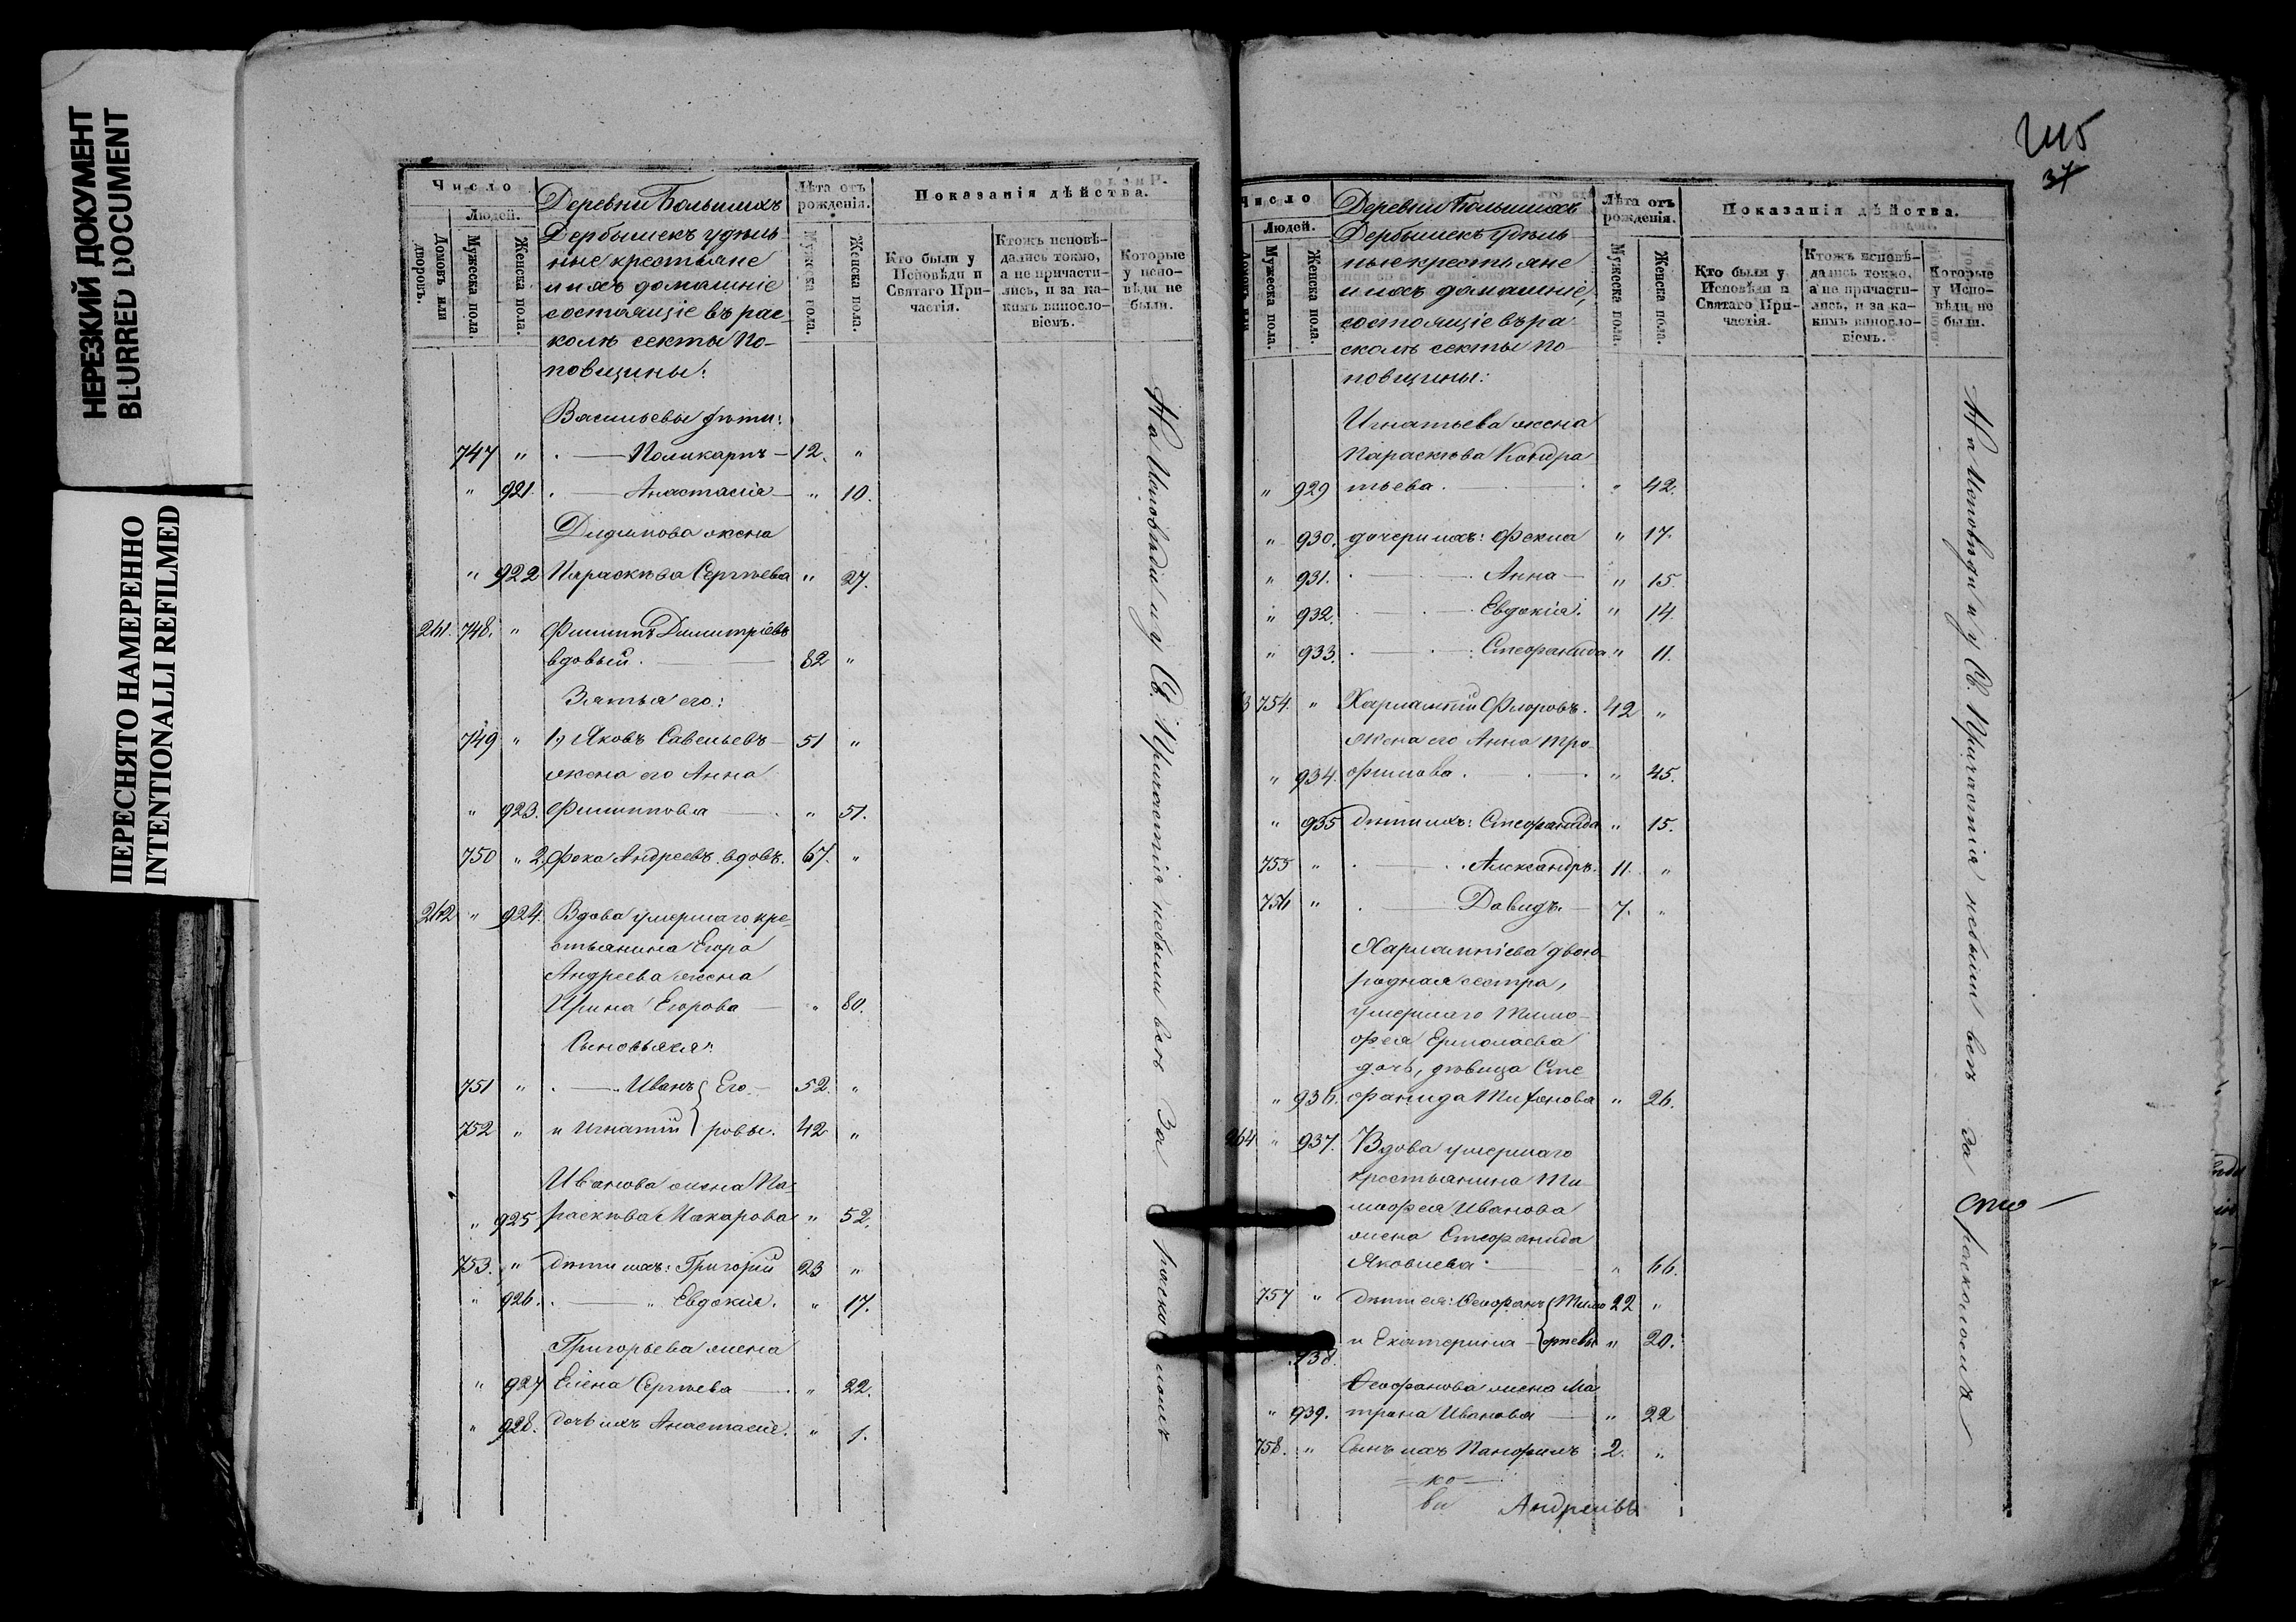 НЕРЕЗКИЙ ДОКУМЕНТ
BLURRED DOCUMENT
ПЕРЕСНЯТО НАМЕРЕННО
INTENTIONALLI REFILMED
Число
Людей.
Домовъ или дворовъ.
Мужеска пола.
Женска пола.
Деревни Большихъ
Дербышекъ удѣль
ные крестьяне
и ихъ домашніе
состоящіе въ рас-
колѣ секты По-
повщины:
Лѣта отъ рожденія.
Мужеска пола.
Женска пола.
Показанія дѣйства.
Кто были у Исповѣди и Святаго Причастія.
Ктожъ исповѣ-
дались токмо,
а не причасти-
лись, и за ка-
кимъ винословіемъ.
Которые у испо-
вѣди не были.
Васильевы дѣти:
747 " Поликарпъ 12. "
" 921. Анастасія " 10.
жена
" 922 Параскѣва Сергѣева " 27.
261. 748. " Филиппъ Димитріевъ
вдовый. 82 "
Зятья его:
749 " 1, Яковъ Савельевъ 51 "
жена его Анна
" 923. Филиппова " 51.
750 " 2, Фока Андреевъ вдовъ. 67. "
262 " 924. Вдова умершаго кре-
стьянина Егора
Андреева жена
Ирина Егорова " 80.
Сыновья ея:
751 " Иванъ Его- 52. "
752 " и Игнатій ровы. 42 "
Иванова жена Па-
" 925 раскѣва Макарова " 52.
753. " Дѣти ихъ: Григорій 23 "
" 926. " Евдокія. " 17.
Григорьева жена
" 927 Елена Сергѣева " 22.
" 928. дочь ихъ Анастасія. " 1.
На Исповѣди и у Св. Причастія небыли всѣ За
245
37
Число
Людей.
Мужеска пола.
Женска пола.
Деревни Большихъ
Дербышекъ удѣль
ные крестьяне
и ихъ домашніе,
состоящіе въ ра
сколѣ секты По
повщины:
Лѣта отъ рожденія.
Мужеска пола.
Женска пола.
Показанія дѣйства.
Кто были у Исповѣди и Святаго Причастія.
Ктожъ исповѣ-
дались токмо,
а не причасти-
лись, и за ка-
кимъ винословіемъ.
Которые у Испо-
вѣди не были.
Игнатьева жена
Параскѣва Кондра
" 929 тьева. " 42.
" 930. дочери ихъ: Фекла " 17.
" 931. Анна " 15.
" 932. Евдокія. " 14.
" 933. Стефанида " 11.
754. " Харлампій Флоровъ. 42 "
жена его Анна Тро-
" 934. фимова. " 45.
" 935 Дѣти ихъ: Стефанида " 15.
755 " Александръ. 11. "
756 " Давидъ. 7. "
Харлампіева двою-
родная сестра,
умершаго Тимо-
фея Ермолаева
дочь, дѣвица Сте
" 936. фанида " 26.
264 " 937. Вдова умершаго
крестьянина Ти
мофея Иванова
жена Стефанида
Яковлева " 66.
757 " Дѣти ея: Феофанъ Тимо 22 "
938. и Екатерина фѣевы " 20.
Феофанова жена Ма
" 939. трона Иванова " 22
758. " Сынъ ихъ Панфилъ 2. "
На Исповѣди и у Св. Причастія небыли всѣ За расколомъ
Андреевъ